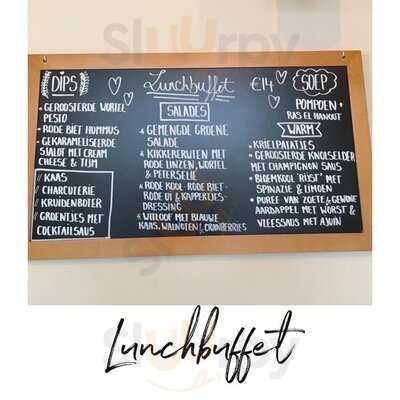 Sluurpy
DIPS
• GEROOSTERDE WORTEL
PESTO
• RODE BIET HUMMUS
• GEKARAMELISEERDE
SJALOT MET CREAM
CHEESE & TIJM
// KAAS
CHARCUTERIE
KRUIDENBOTER
GROENTJES MET
COCKTAILSAUS
Lunchbuffet €14
SALADES
• GEMENGDE GROENE
SALADE
• KIKKERERWTEN MET
RODE LINZEN, WORTEL
& PETERSELIE
• RODE KOOL-RODE BIET-
RODE UI & KAPPERTJES-
DRESSING
• WITLOOF MET BLAUWE
KAAS, WALNOTEN & CRANBERRIES
SOEP
POMPOEN +
RAS EL HANOUT
WARM
• KRIELPATATJES
• GEROOSTERDE KNOLSELDER
MET CHAMPIGNON SAUS
• BLOEMKOOL 'RIJST' MET
SPINAZIE & LIMOEN
• PUREE VAN ZOETE & GEWONE
AARDAPPEL MET WORST &
VLEESSAUS MET AJUIN
Lunchbuffet